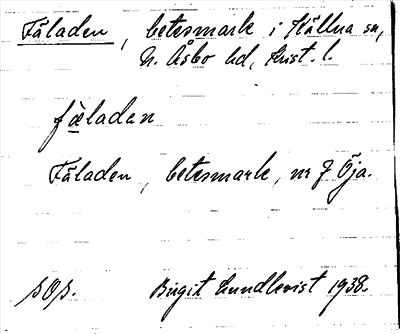 Fäladen, betesmark i Hällna sn,
N. Åsbo hd, Krist. l.
fäladen
Fäladen, betesmark, nr 7 Öja.
SOS. Birgit Lundkvist 1938.